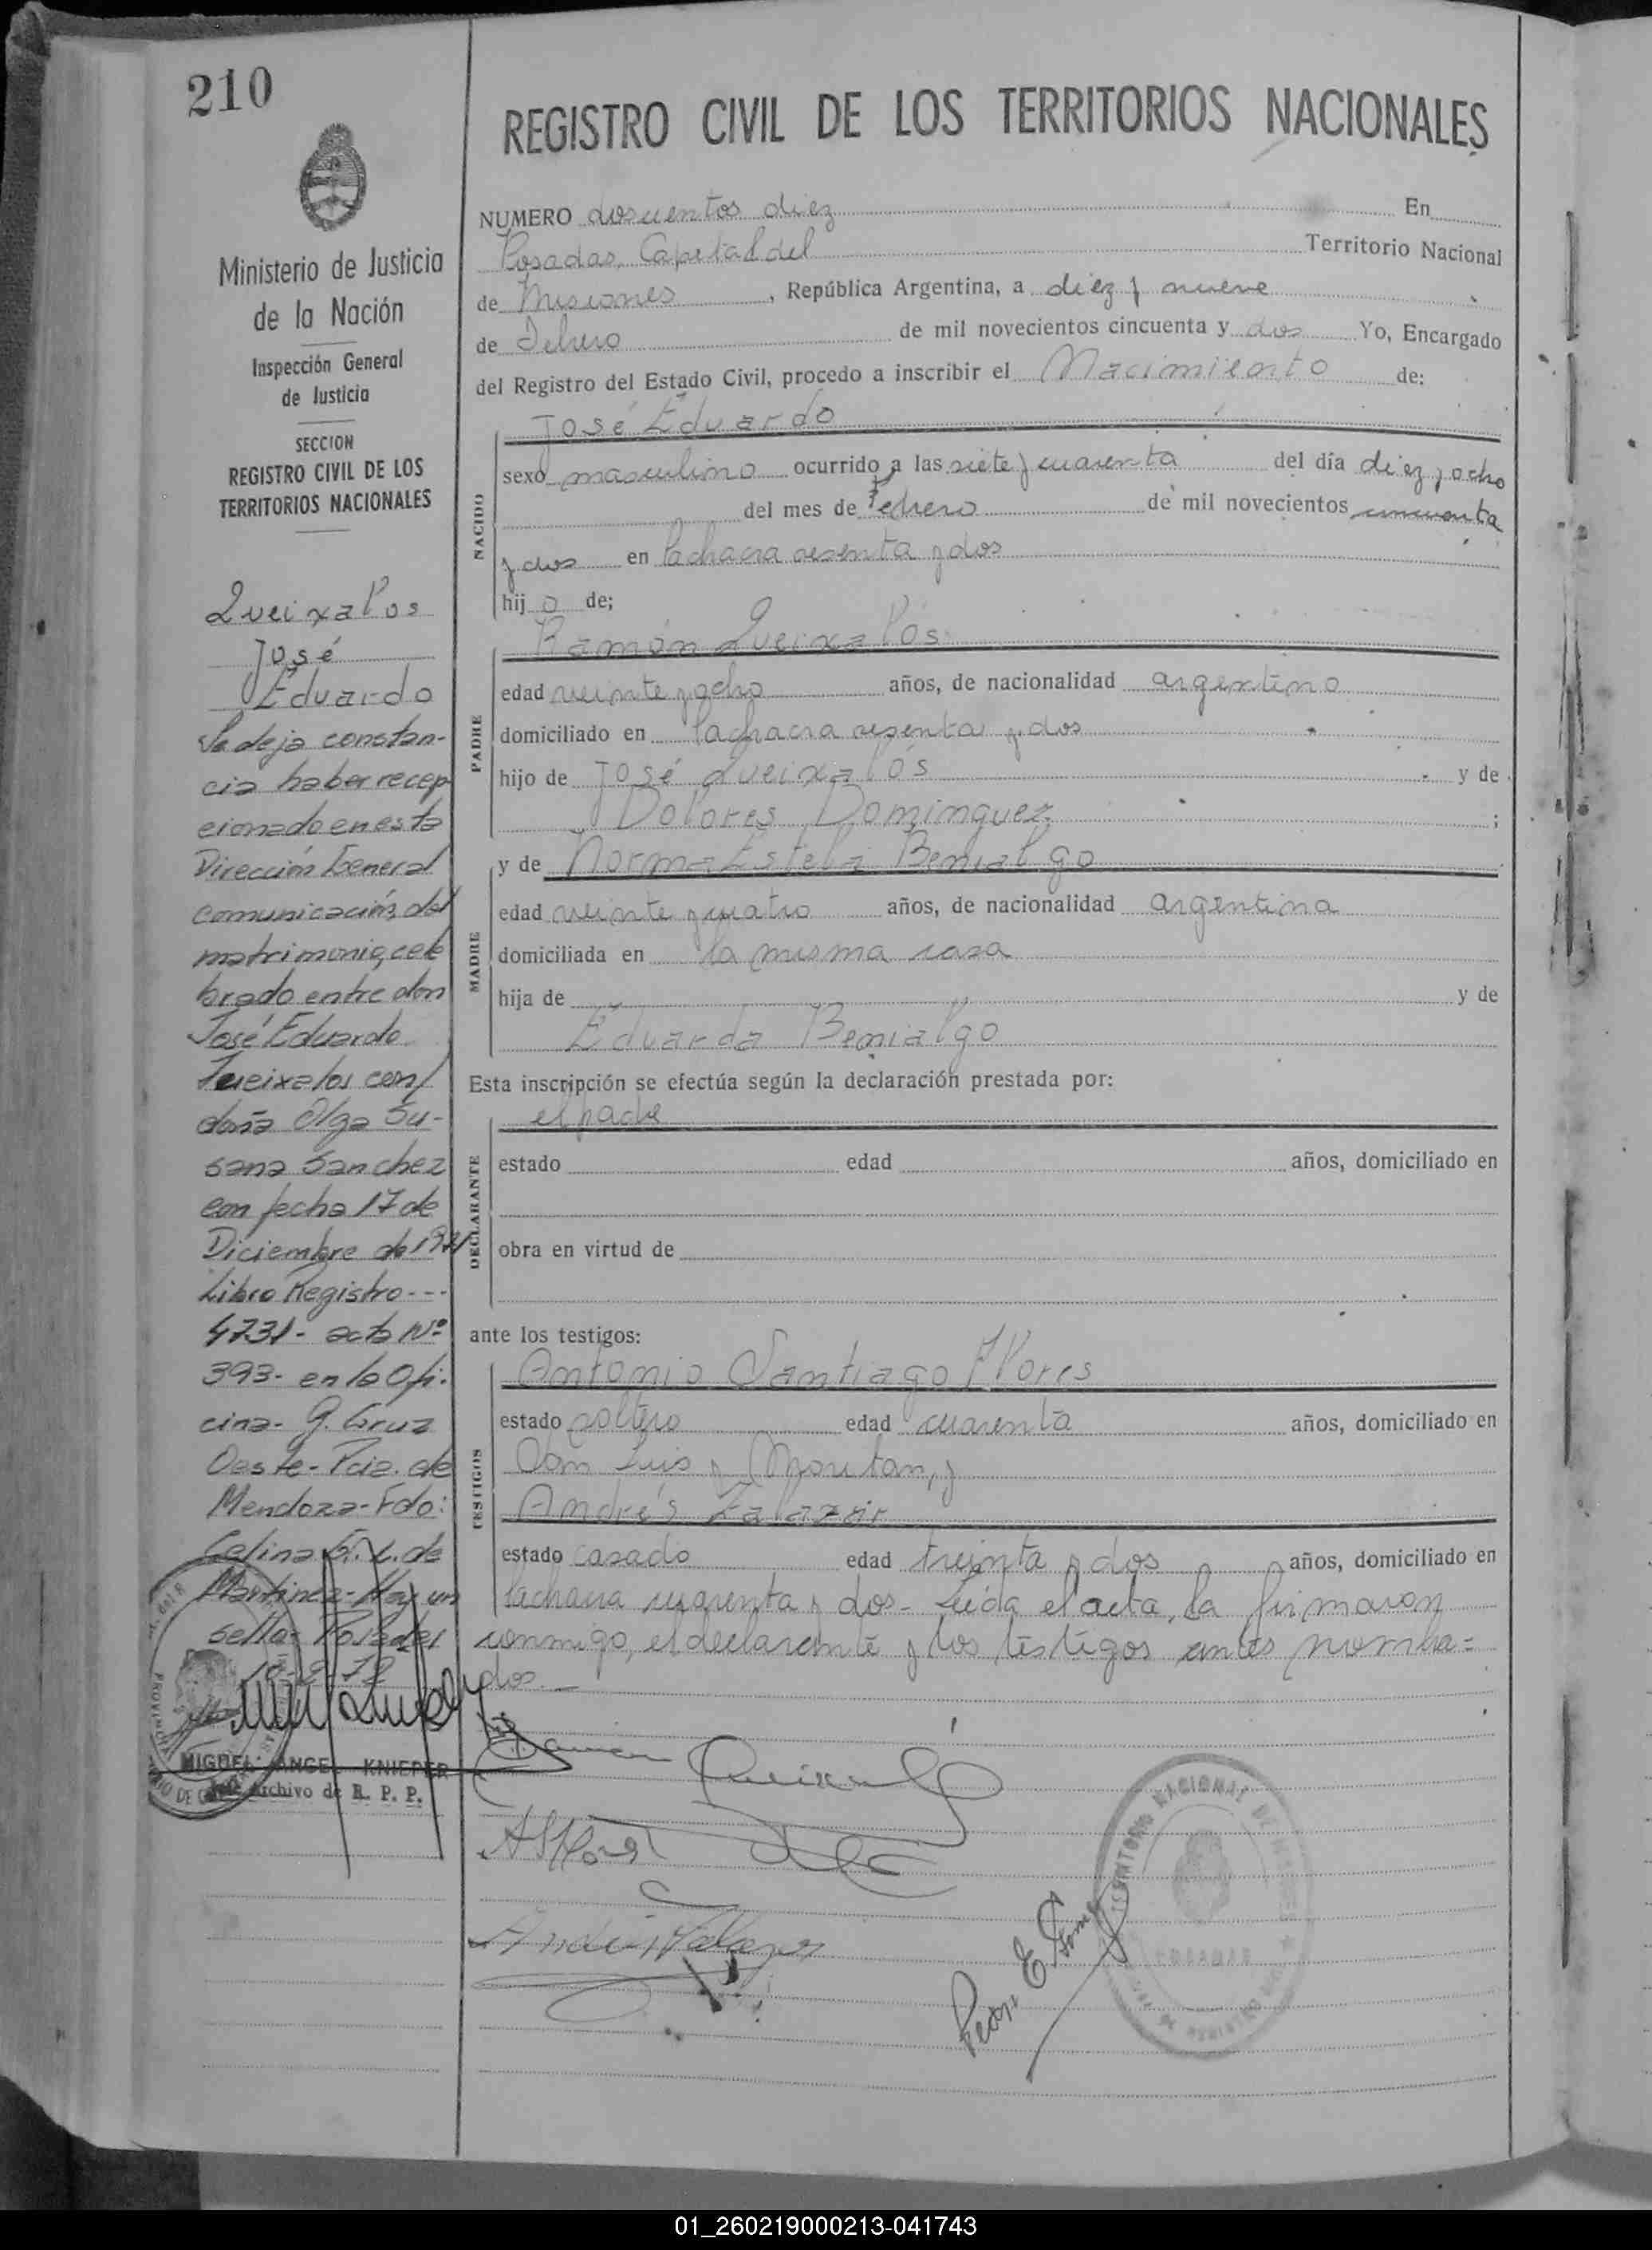 210
REGISTRO CIVIL DE LOS TERRITORIOS NACIONALES
Ministerio de Justicia
de la Nación
Inspección General
de Justicia
SECCION
REGISTRO CIVIL DE LOS
TERRITORIOS NACIONALES
Queixalos
José
Eduardo
Se deja constan-
cia haber recep
cionado en esta
Dirección General
comunicación del
matrimonio, cele
brado entre don
José Eduardo
Queixalos con
doña Olga Su-
sana Sanchez
con fecha 17 de
Diciembre de 1971
Libro Registro---
4731- acta Nº
393- en la Ofi-
cina- G. Cruz
Oeste- Pcia. de
Mendoza- Fdo:
Celina E. L. de
Martinez- Hay un
sello- Posadas
MIGUEL ANGEL KNIEPER
Archivo de R. P. P.
NUMERO doscientos diez En
Posadas, Capital del Territorio Nacional
de Misiones, República Argentina, a diez y nueve
de Febrero de mil novecientos cincuenta y dos Yo, Encargado
del Registro del Estado Civil, procedo a inscribir el Nacimiento de:
NACIDO
José Eduardo
sexo masculino ocurrido a las siete y cuarenta del día diez y ocho
del mes de Febrero de mil novecientos cincuenta
y dos en la chacra sesenta y dos
hijo de;
PADRE
Ramón Queixalós
edad veinte y ocho años, de nacionalidad argentino
domiciliado en la chacra sesenta y dos
hijo de José Queixalós y de
Dolores Dominguez;
MADRE
y de Norma Estela Benialgo
edad veinte y cuatro años, de nacionalidad argentina
domiciliada en la misma casa
hija de y de
Eduarda Benialgo
Esta inscripción se efectúa según la declaración prestada por:
DECLARANTE
el padre
estado edad años, domiciliado en
obra en virtud de
ante los testigos:
TESTIGOS
Antonio Santiago Flores
estado soltero edad cuarenta años, domiciliado en
San Luis y Moritan, y
Andrés Zalazar
estado casado edad treinta y dos años, domiciliado en
la chacra cuarenta y dos- Leída el acta, la firmaron
conmigo, el declarante y los testigos antes nombra=
dos.—
Ramon Queixalos
ASFlores
Andrés Zalazar
Pedro E. Gomez
TERRITORIO NACIONAL DE MISIONES
POSADAS
01_260219000213-041743